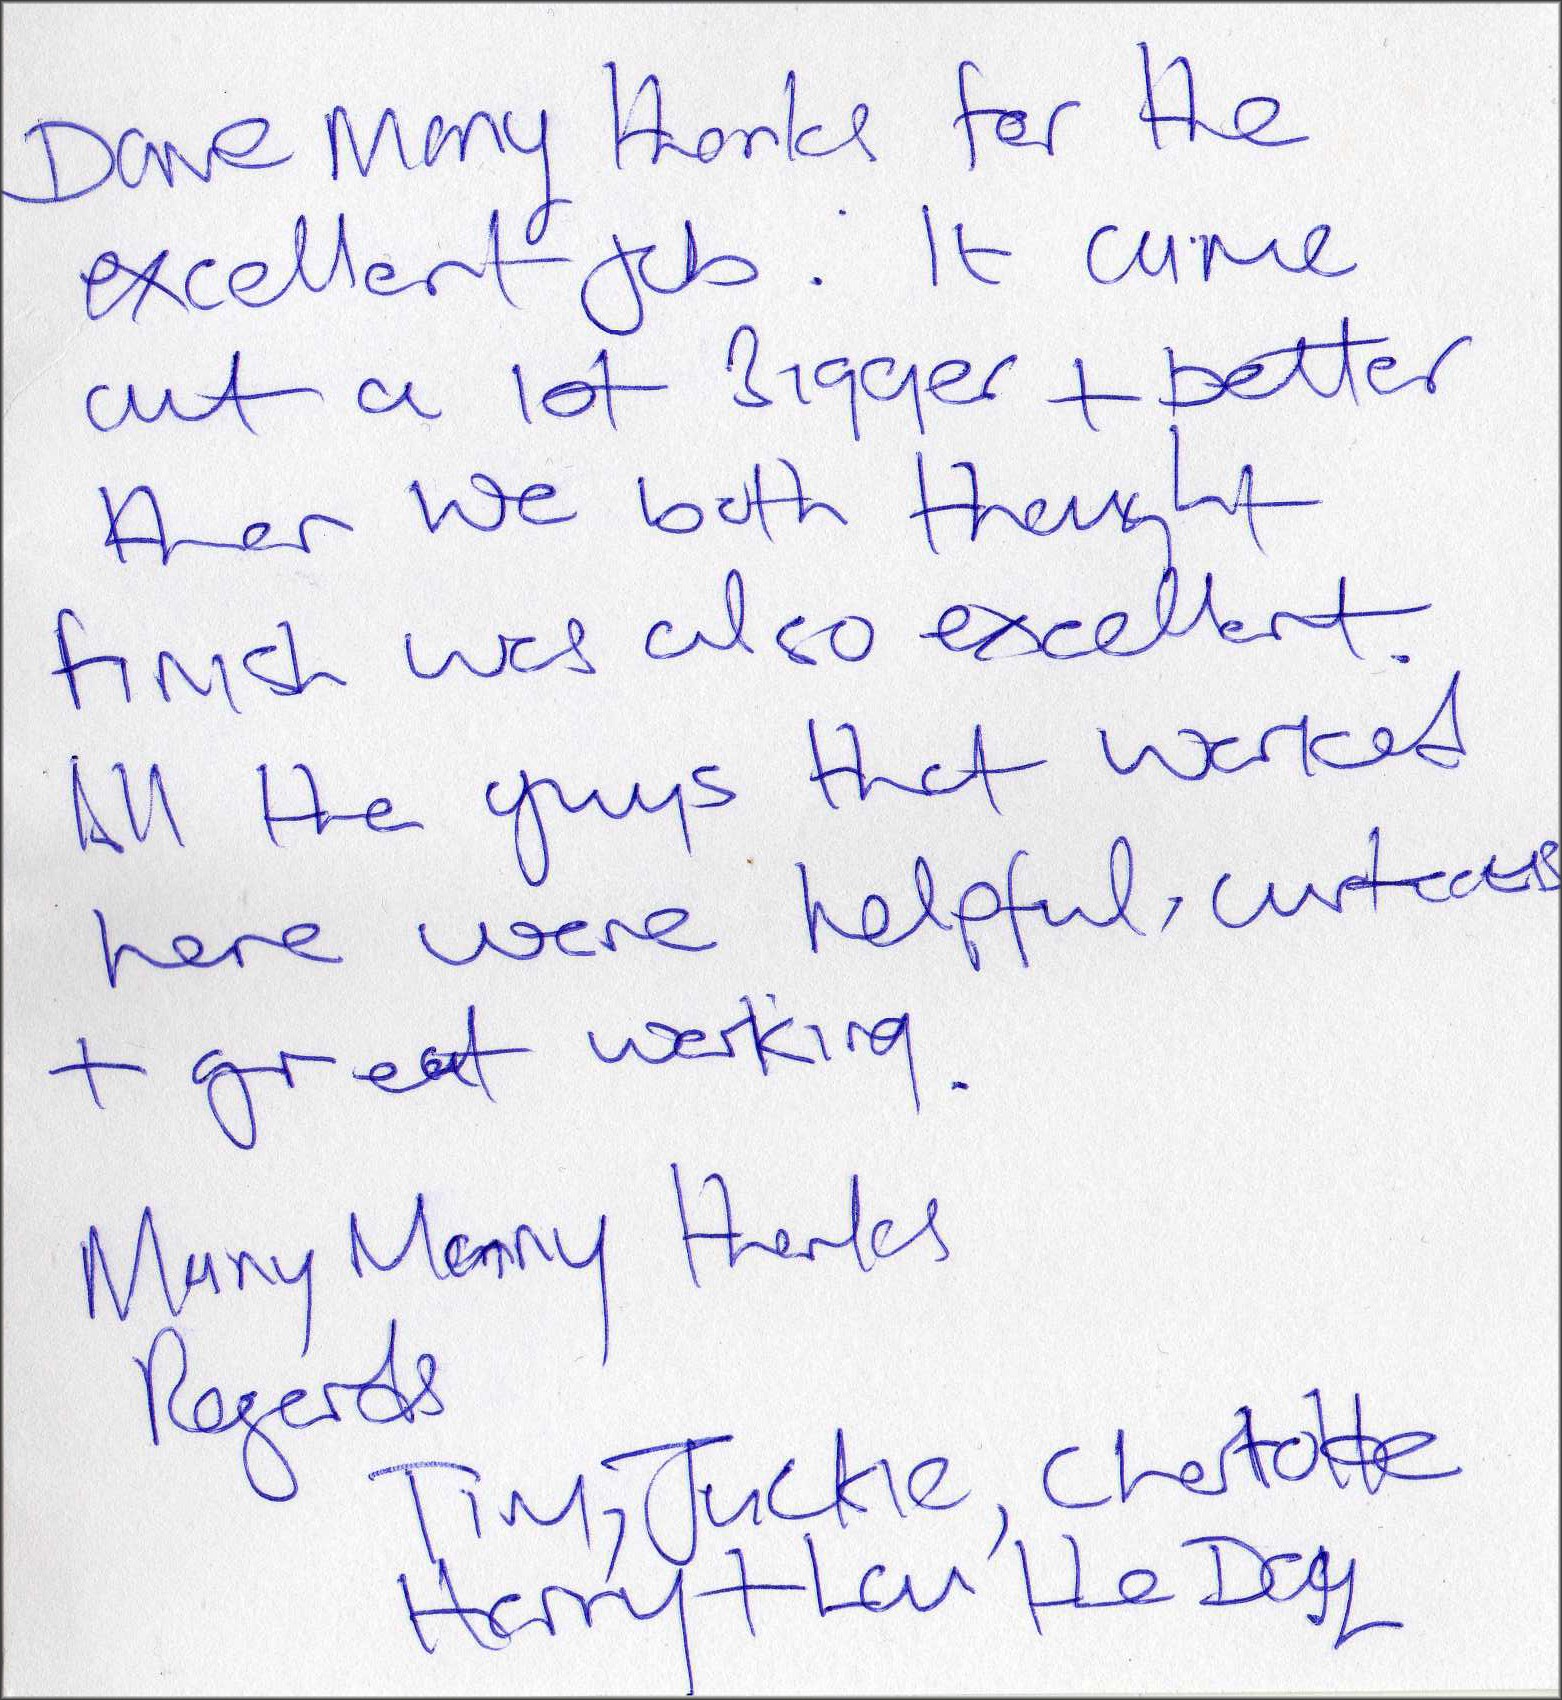 Dave Many thanks for the
excellent job. It came
out a lot Bigger + better
then we both thought
finish was also excellent.
All the guys that worked
here were helpful, curteous
+ great working.
Many Many thanks
Regards
Tim, Jackie, Charlotte
Harry + Lou the Dog